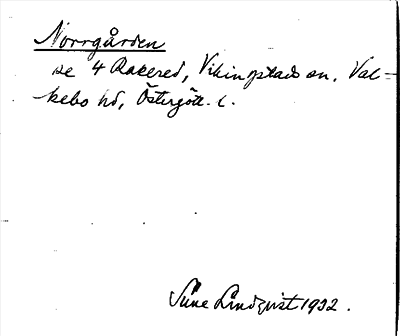 Norrgården
se 4 Rakered, Vikingstads sn, Val=
kebo hd, Östergötl. l.
Sune Lindqvist 1932.